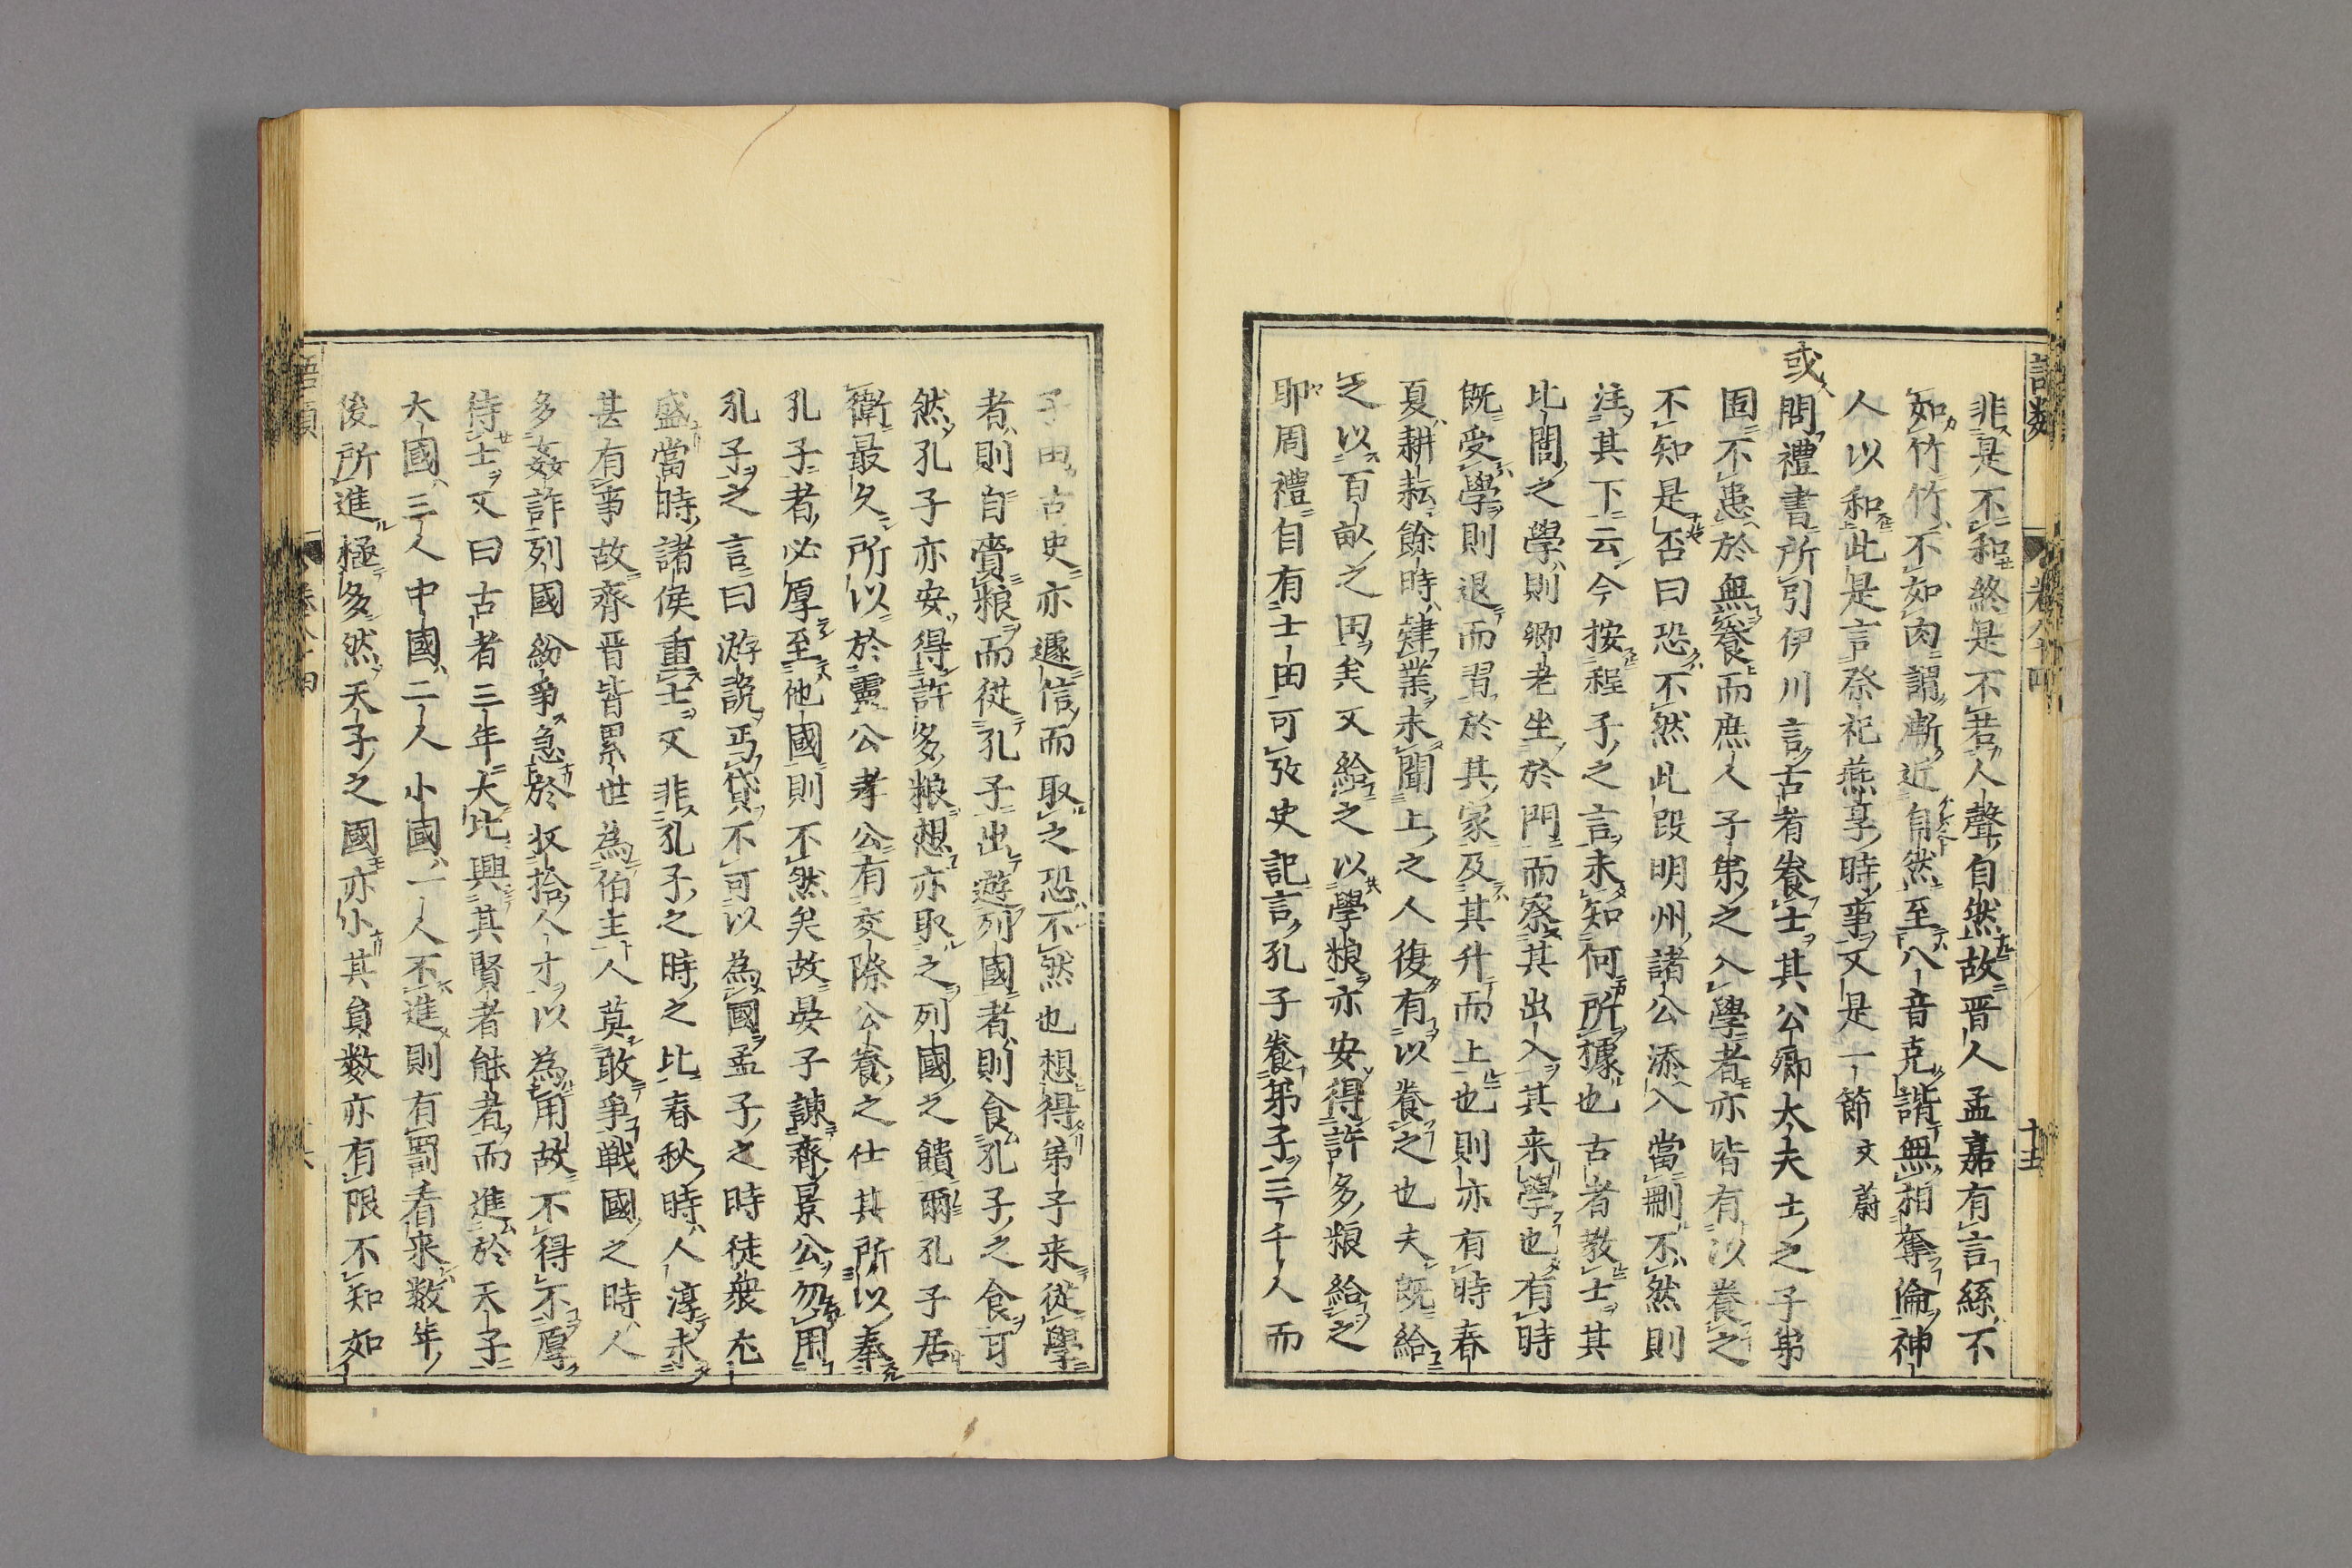 非是不和終是不若人聲自然故晋人孟嘉有言絲不
如竹竹不如肉謂漸近自然至八音克諧無相奪倫神
人以和此是言祭祀燕享時事又是一節 文蔚
或問禮書所引伊川言古者養士其公卿大夫士之子弟
固不患於無養而庶人子弟之入學者亦皆有以養之
不知是否曰恐不然此段明州諸公添入當刪不然則
注其下云今按程子之言未知何所據也古者教士其
比閭之學則卿老坐於門而察其出入其来學也有時
既受學則退而習於其家及其升而上也則亦有時春
夏耕耘餘時肄業未聞上之人復有以養之也夫既給
之以百畝之田矣又給之以學粮亦安得許多粮給之
耶周禮自有士田可攷史記言孔子養弟子三千人而
子由古史亦遽信而取之恐不然也想得弟子来從學
者則自賫粮而從孔子出遊列國者則食孔子之食可
然孔子亦安得許多粮想亦取之列國之饋爾孔子居
衛最久所以於靈公孝公有交際公養之仕其所以奉
孔子者必厚至他國則不然矣故晏子諫齊景公勿用
孔子之言曰游說丐貸不可以為國孟子之時徒衆尤
盛當時諸侯重士又非孔子之時之比春秋時人淳未
甚有事故齊晋皆累世為伯主人莫敢爭戰國之時人
多姦詐列國紛爭急於収拾人才以為用故不得不厚
待士又曰古者三年大比興其賢者能者而進於天子
大國三人中國二人小國一人不進則有罰看来数年
後所進極多然天子之國亦小其員数亦有限不知如
語類
卷八十四
十五